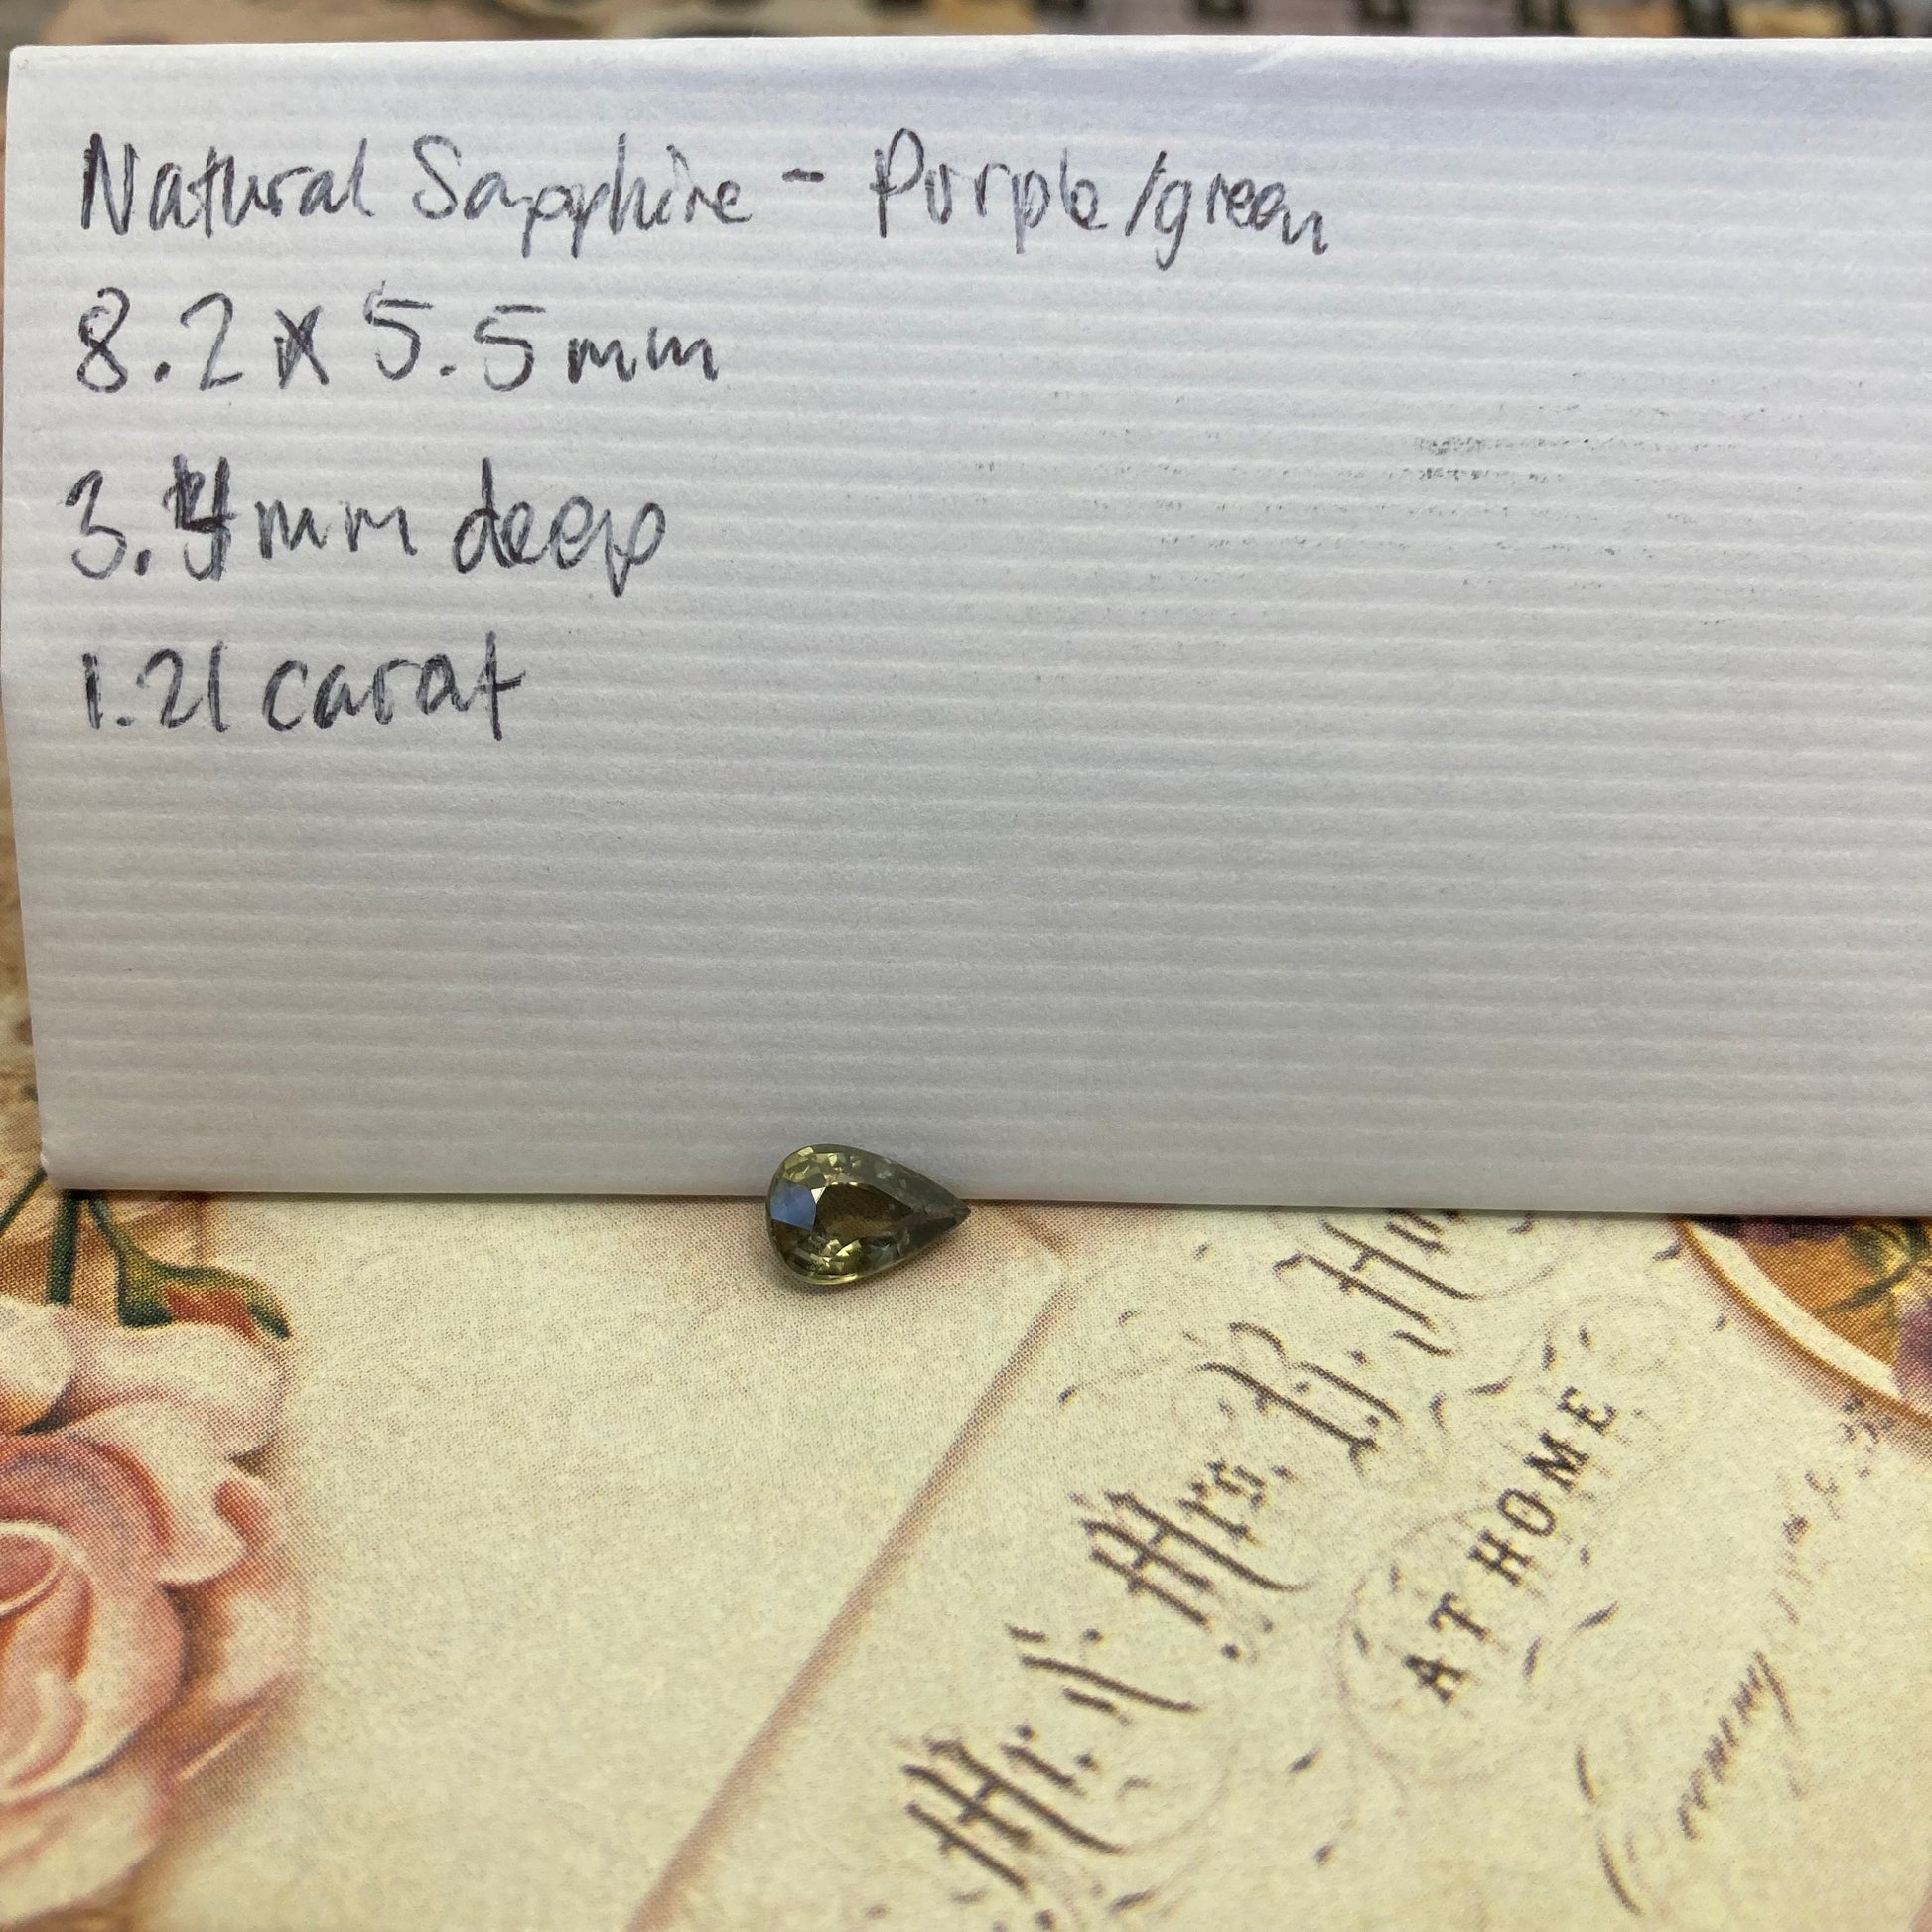 Natural Sapphire - Purple/green
8.2 x 5.5mm
3.4mm deep
1.21 carat
Mr. & Mrs. B.
AT HOME